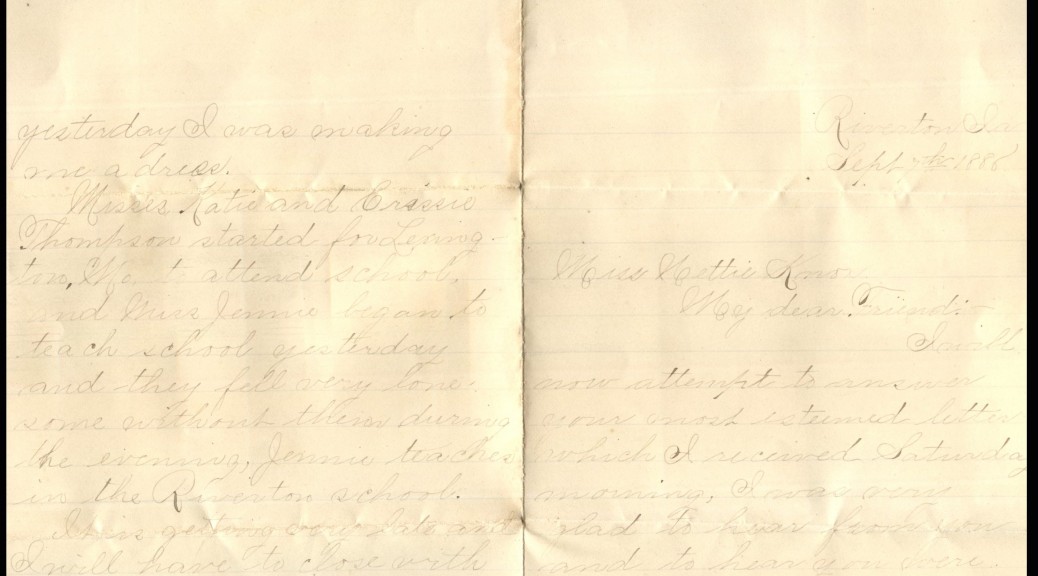 yesterday I was making
me a dress.
Misses Katie and Erissie
Thompson started for Lexing-
ton, Mo. to attend school,
and Miss Jennie began to
teach school yesterday
and they fell very lone-
some without them during
the evening, Jennie teaches
in the Riverton school.
It is getting very late and
I will have to close with
Riverton Ia
Sept 7th 1886
Miss Nettie Knox
My dear Friend:-
I will
now attempt to answer
your most esteemed letter
which I received Saturday
morning, I was very
glad to hear from you
and to hear you were